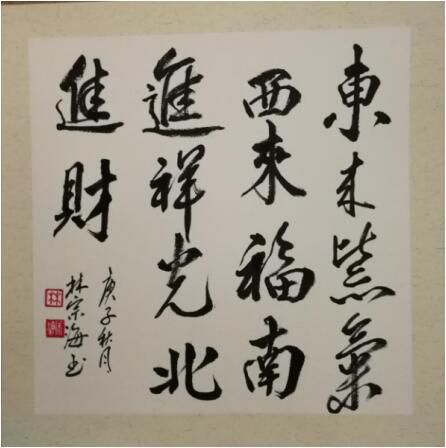 東来紫氣
西來福南
進祥光北
進財
庚子秋月
林宗海书